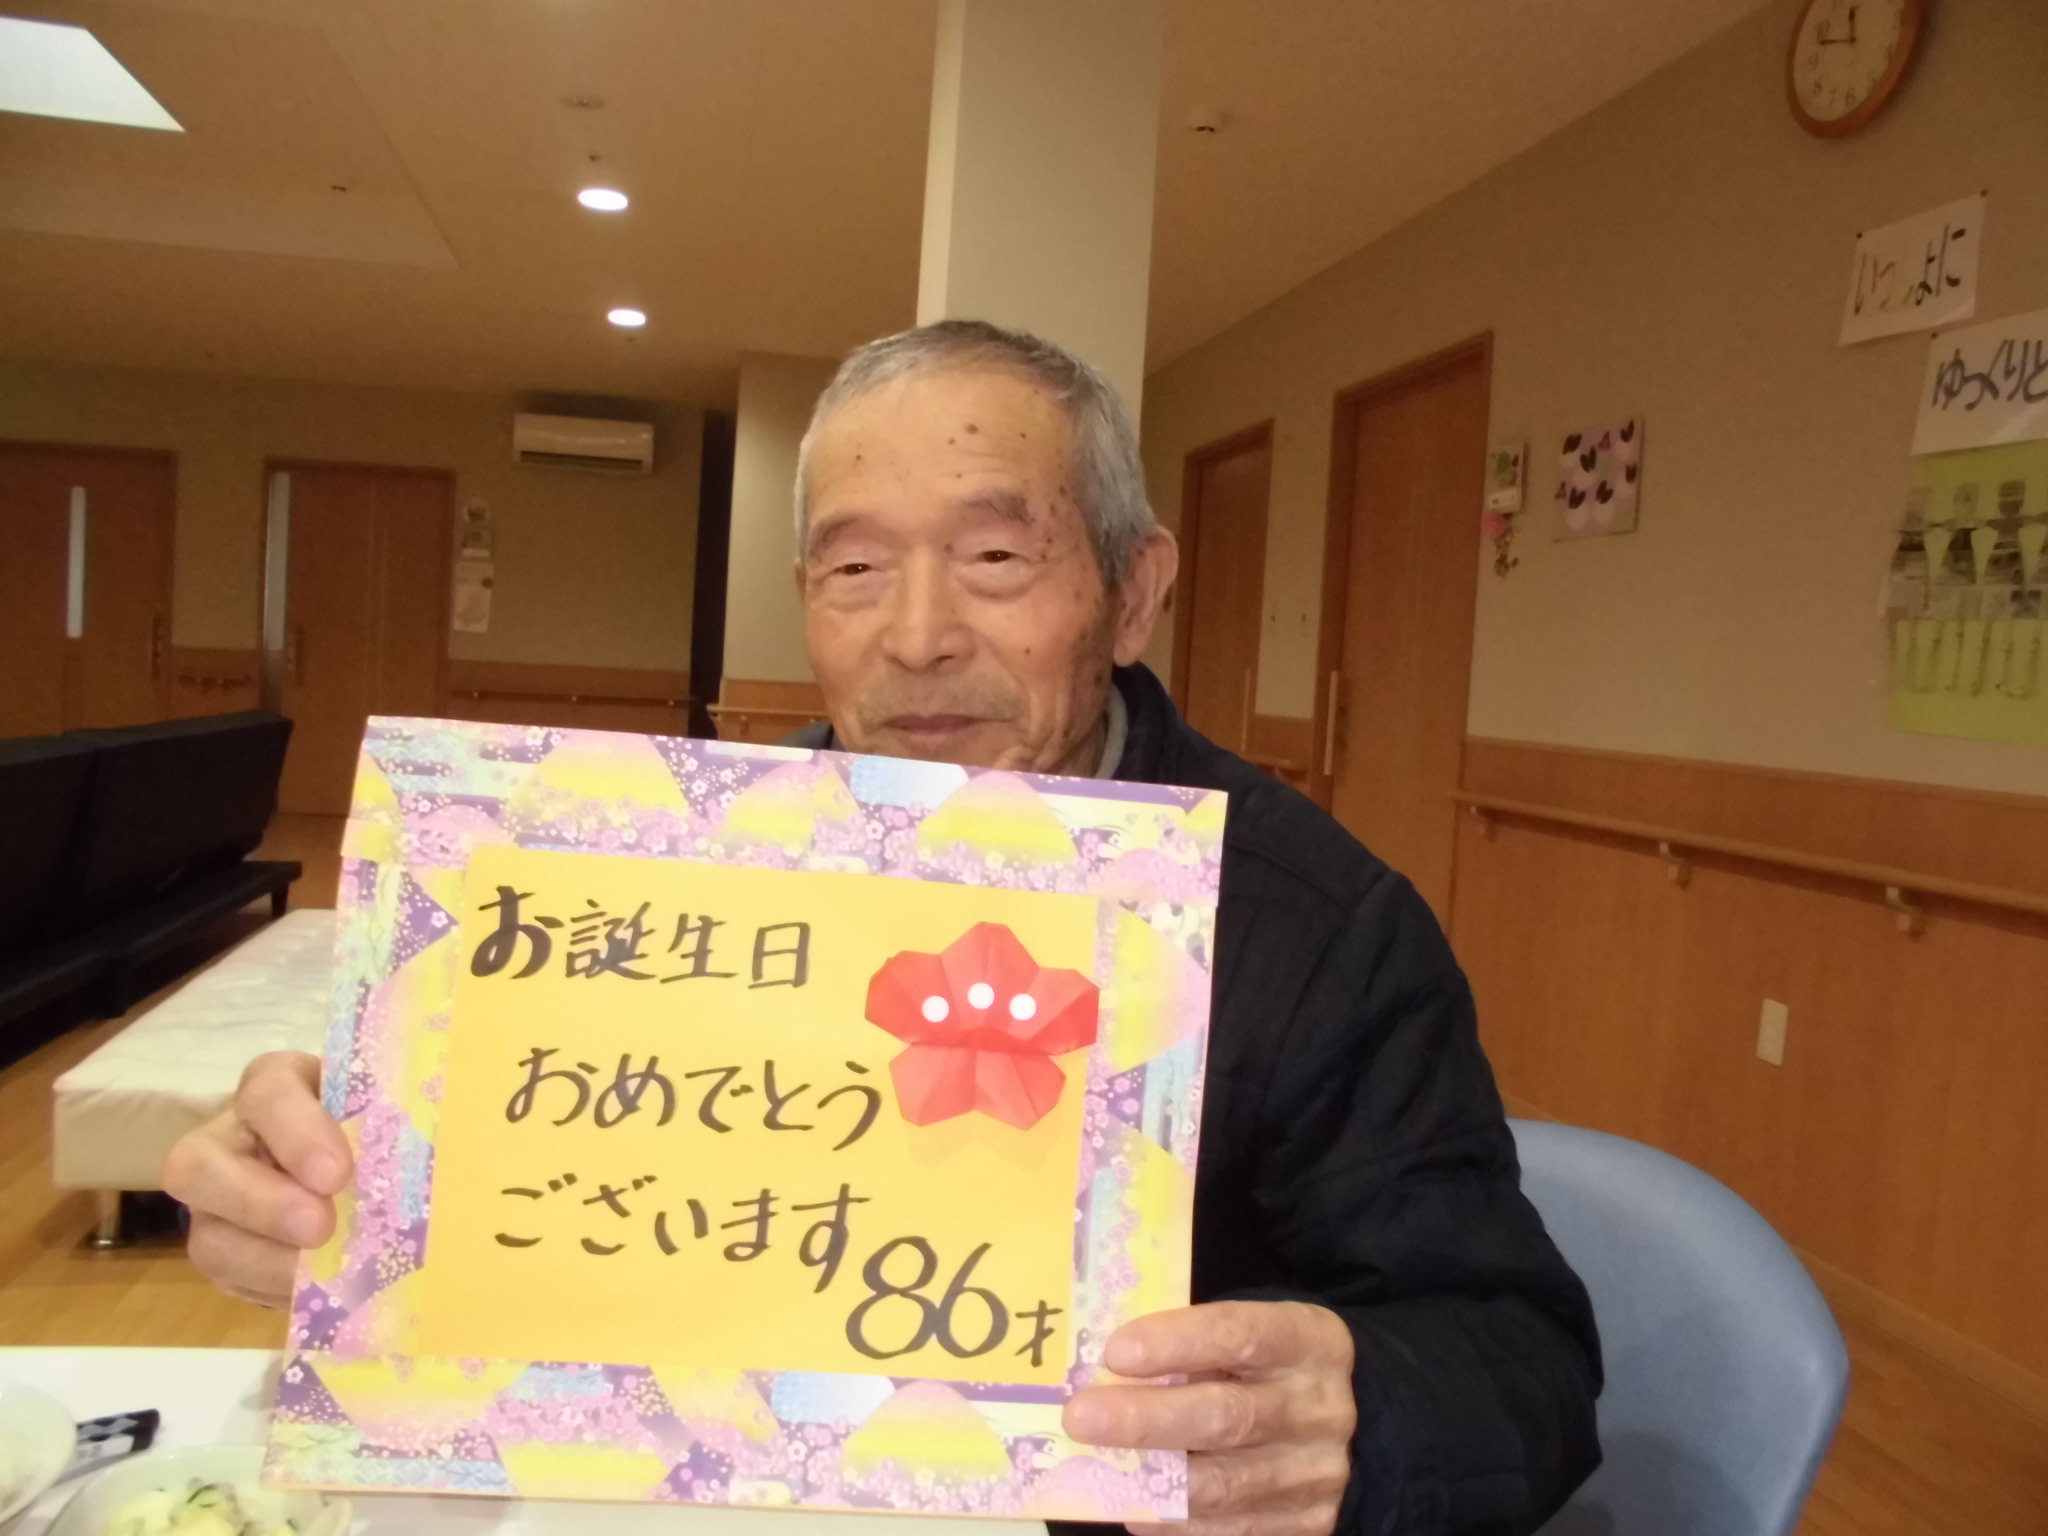 お誕生日
おめでとう
ございます
86才
いっしょに
ゆっくりと